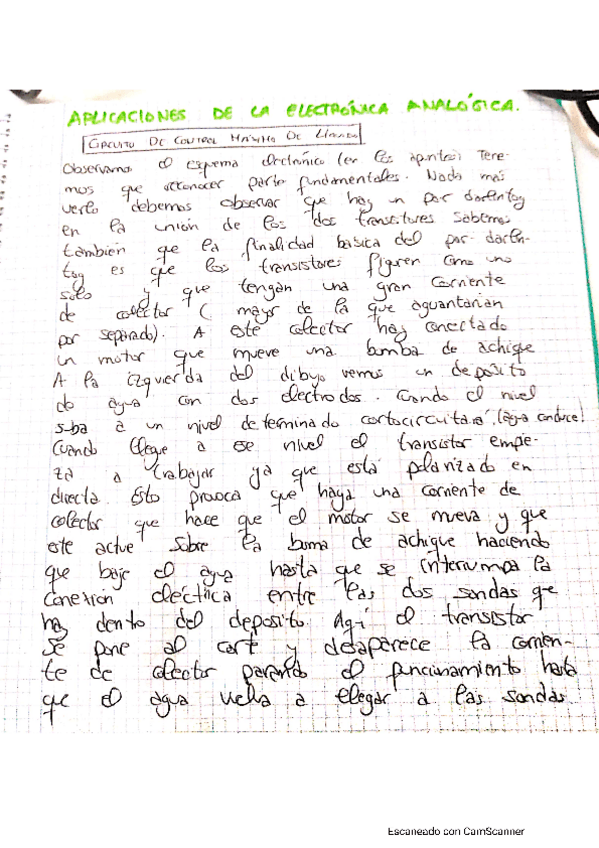 APLICACIONES DE LA ELECTRÓNICA ANALÓGICA.
CIRCUITO DE CONTROL MÁXIMO DE LÍQUIDO
Observamos el esquema electrónico (en los apuntes) Tene-
mos que reconocer parte fundamentales. Nada más
verlo debemos observar que hay un par darlentog
en la unión de los dos transitores sabemos
también que la finalidad basica del par darlen-
tog es que los transistores figuren como uno
solo y que tengan una gran corriente
de colector ( mayor de la que aguantarían
por separado). A este colector hay conectado
un motor que mueve una bomba de achique
A la izquierda del dibujo vemos un deposito
de agua con dos electrodos. Cuando el nivel
suba a un nivel determinado cortocircuitara (agua conduce!
Cuando llegue a ese nivel el transistor empe-
za a trabajar ya que está polarizado en
directa. Esto provoca que haya una corriente de
colector que hace que el motor se mueva y que
este actue sobre la boma de achique haciendo
que baje el agua hasta que se interrumpa la
conexion eléctrica entre las dos sondas que
hay dento del deposito. Aqí el transistor
se pone al cort y desaparece la corrien-
te de colector parando el funcionamiento hasta
que el agua vuelva a llegar a las sondas
Escaneado con CamScanner